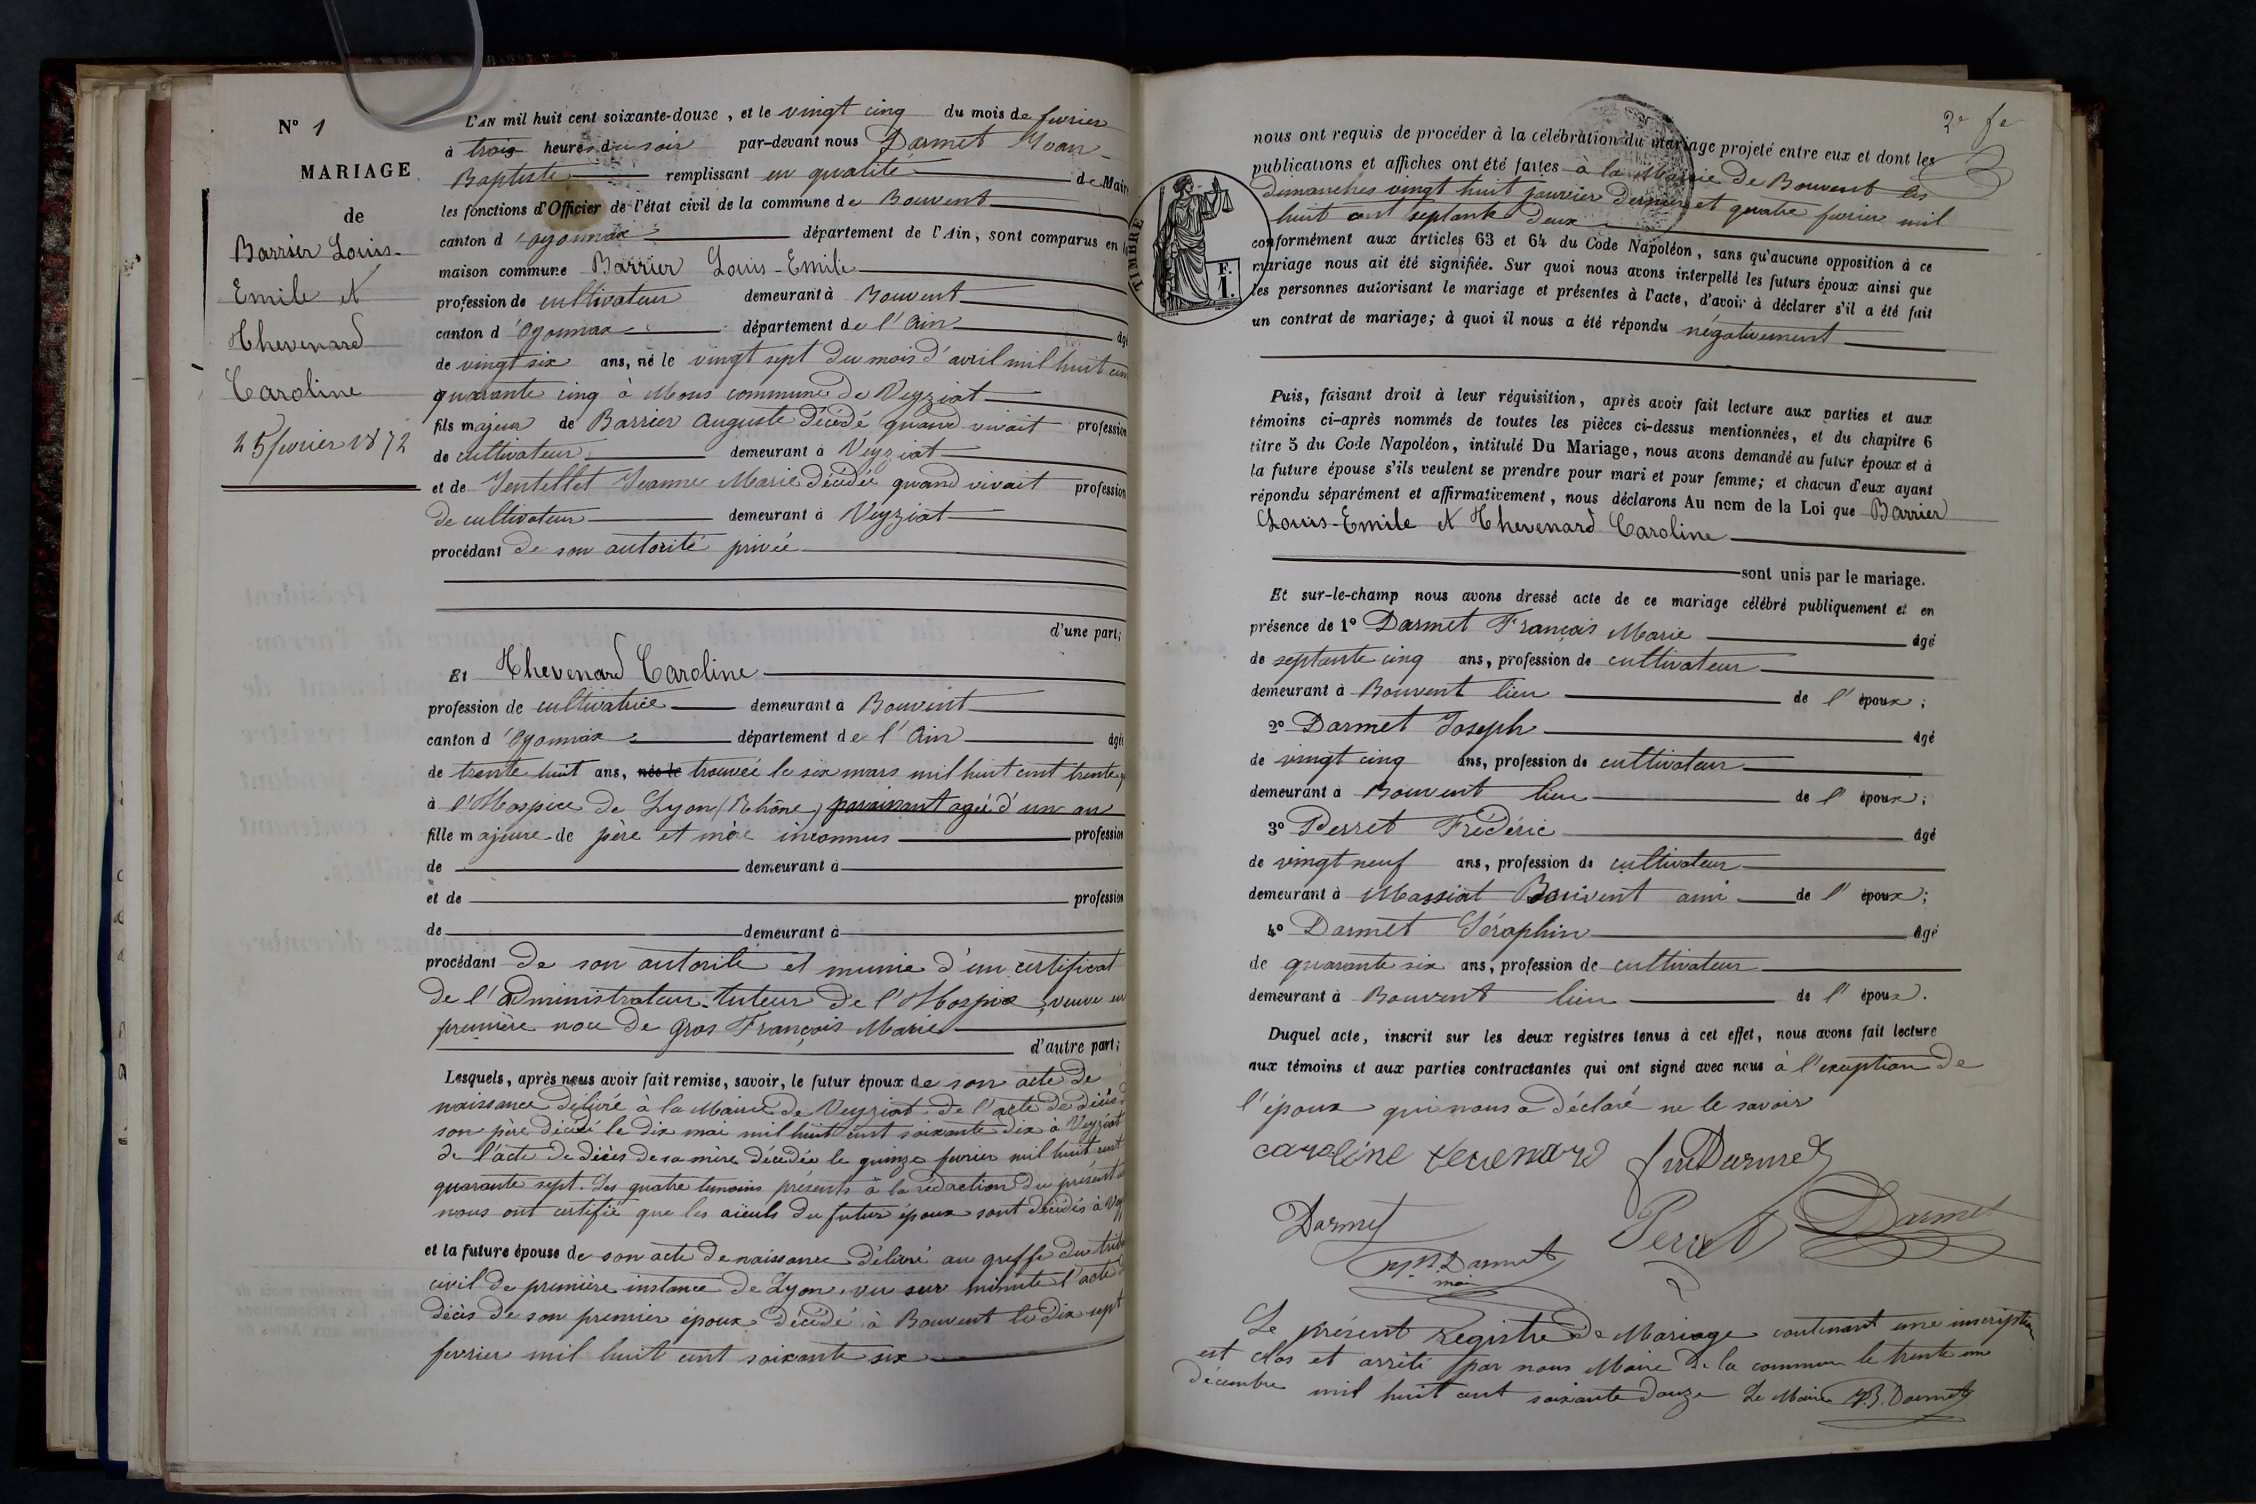 N° 1
MARIAGE
de
Barrier Louis-
Emile et
Thevenard
Caroline
25 fevrier 1872
L'AN mil huit cent soixante-douze, et le vingt cinq du mois de fevrier
à trois heures du soir par-devant nous Darmet Jean-
Baptiste remplissant en qualité de Maire
les fonctions d'Officier de l'état civil de la commune de Bouvent
canton d'Oyonnax département de l'Ain, sont comparus en la
maison commune Barrier Louis-Emile
profession de cultivateur demeurant à Bouvent
canton d'Oyonnax département de l'Ain âgé
de vingt six ans, né le vingt sept du mois d'avril mil huit cent
quarante cinq à Mons commune de Veyziat
fils majeur de Barrier Auguste décédé quand vivait profession
de cultivateur demeurant à Veyziat
et de Jeantellet Jeanne Marie décédée quand vivait profession
de cultivateur demeurant à Veyziat
procédant de son autorité privée
d'une part;
Et Thevenard Caroline
profession de cultivatrice demeurant à Bouvent
canton d'Oyonnax département de l'Ain âgée
de trente huit ans, née le trouvée le six mars mil huit cent trente
à l'Hospice de Lyon (Rhône) paraissant agée d'un an
fille majeure de père et mère inconnus profession
de demeurant à
et de profession
de demeurant à
procédant de son autorité et munie d'un certificat
de l'administrateur tuteur de l'Hospice, veuve en
première noce de Gros François Marie
d'autre part;
Lesquels, après nous avoir fait remise, savoir, le futur époux de son acte de
naissance délivré à la Mairie de Veyziat de l'acte de décès de
son père décédé le dix mai mil huit cent soixante dix à Veyziat
de l'acte de décès de sa mère décédée le quinze fevrier mil huit cent
quarante sept. Les quatre temoins présents à la rédaction du présent
nous ont certifié que les aïeuls du futur époux sont décédés à
et la future épouse de son acte de naissance délivré au greffe du
civil de première instance de Lyon, vu sur minute l'acte
décès de son premier époux décédé à Bouvent le dix sept
fevrier mil huit cent soixante six
2e fe
nous ont requis de procéder à la célébration du mariage projeté entre eux et dont les
publications et affiches ont été faites à la Mairie de Bouvent les
dimanches vingt huit janvier dernier et quatre fevrier mil
huit cent septante deux
conformément aux articles 63 et 64 du Code Napoléon, sans qu'aucune opposition à ce
mariage nous ait été signifiée. Sur quoi nous avons interpellé les futurs époux ainsi que
les personnes autorisant le mariage et présentes à l'acte, d'avoir à déclarer s'il a été fait
un contrat de mariage; à quoi il nous a été répondu négativement
TIMBRE
F.
1.
Puis, faisant droit à leur réquisition, après avoir fait lecture aux parties et aux
témoins ci-après nommés de toutes les pièces ci-dessus mentionnées, et du chapitre 6
titre 5 du Code Napoléon, intitulé Du Mariage, nous avons demandé au futur époux et à
la future épouse s'ils veulent se prendre pour mari et pour femme; et chacun d'eux ayant
répondu séparément et affirmativement, nous déclarons Au nom de la Loi que Barrier
Louis-Emile et Thevenard Caroline
sont unis par le mariage.
Et sur-le-champ nous avons dressé acte de ce mariage célébré publiquement et en
présence de 1° Darmet François Marie âgé
de septante cinq ans, profession de cultivateur
demeurant à Bouvent lieu de l'époux;
2° Darmet Joseph âgé
de vingt cinq ans, profession de cultivateur
demeurant à Bouvent lieu de l'époux;
3° Perret Frédéric âgé
de vingt neuf ans, profession de cultivateur
demeurant à Massiat Bouvent ami de l'époux;
4° Darmet Séraphin âgé
de quarante six ans, profession de cultivateur
demeurant à Bouvent lieu de l'époux.
Duquel acte, inscrit sur les deux registres tenus à cet effet, nous avons fait lecture
aux témoins et aux parties contractantes qui ont signé avec nous à l'exception de
l'époux qui nous a déclaré ne le savoir
caroline tevenard fmDarmet
Darmet Perret Darmet
J.B. Darmet
maire
Le présent Registre de Mariage contenant une inscription
est clos et arrêté par nous Maire de la commune le trente un
décembre mil huit cent soixante douze Le Maire J.B. Darmet